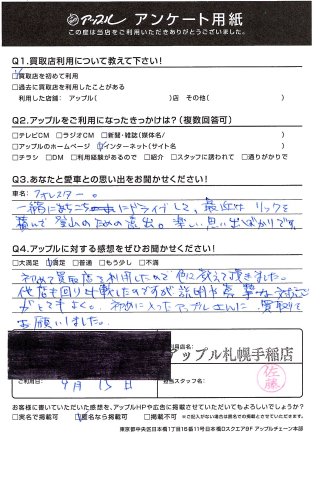 アップル アンケート用紙
この度は当店をご利用いただきありがとうございました。
Q1.買取店利用について教えて下さい!
☑買取店を初めて利用
□過去に買取店を利用したことがある
利用した店舗: アップル( )店 その他( )
Q2.アップルをご利用になったきっかけは?(複数回答可)
□テレビCM □ラジオCM □新聞・雑誌(媒体名/ )
□アップルのホームページ ☑インターネット(サイト名 )
□チラシ □DM □利用経験があるので □紹介 □スタッフに誘われて □通りがかりで
Q3.あなたと愛車との思い出をお聞かせください!
車名: フォレスター。
一緒にあちこちにドライブして、最近は リュックを
積んで登山のための出発。楽しい思い出ばかりです。
Q4.アップルに対する感想をぜひお聞かせください!
□大満足 ☑満足 □普通 □もう少し □不満
初めて買取店を利用したので色々教えて頂きました。
他店も回り比較したのですが説明や
がとてもよく、初めに入ったアップルさんに 買取りを
お願いしました。
店名:
アップル札幌手稲店
ご利用日: 9月 15日
担当スタッフ名:
佐藤
お客様に書いていただいた感想を、アップルHPや広告に掲載させていただいてもよろしいでしょうか?
□実名で掲載可 ☑匿名なら掲載可 □掲載不可 ※ご記入がない場合は匿名での掲載とさせていただきます。
東京都中央区日本橋1丁目16番11号日本橋Dスクエア9F アップルチェーン本部